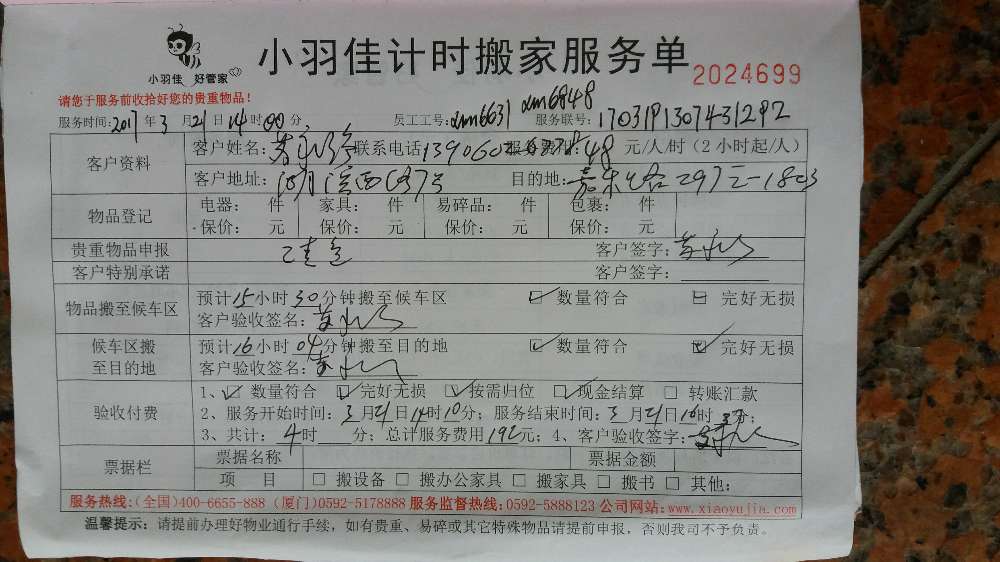 小羽佳计时搬家服务单
小羽佳 好管家
2024699
请您于服务前收拾好您的贵重物品!
服务时间:2017年3月21日14时00分 员工工号:xm6631 xm6848 服务联号:1703191307431292
客户资料
客户姓名: 联系电话139060 48元/人/时(2小时起/人)
客户地址: 目的地:
物品登记
电器: 件 家具: 件 易碎品: 件 包裹: 件
保价: 元 保价: 元 保价: 元 保价: 元
贵重物品申报 客户签字:
客户特别承诺 客户签字:
物品搬至候车区
预计15小时30分钟搬至候车区 ☑ 数量符合 ☑ 完好无损
客户验收签名:
候车区搬至目的地
预计16小时04分钟搬至目的地 ☑ 数量符合 ☑ 完好无损
客户验收签名:
验收付费
1、☑ 数量符合 ☑ 完好无损 ☑ 按需归位 ☑ 现金结算 □ 转账汇款
2、服务开始时间:3月21日14时10分;服务结束时间:3月21日16时 分;
3、共计:4时 分;总计服务费用192元;4、客户验收签字:
票据栏
票据名称 票据金额
项 目 □ 搬设备 □ 搬办公家具 □ 搬家具 □ 搬书 □ 其他:
服务热线:(全国)400-6655-888 (厦门)0592-5178888 服务监督热线:0592-5888123 公司网站:www.xiaoyujia.com
温馨提示:请提前办理好物业通行手续,如有贵重、易碎或其它特殊物品请提前申报,否则我司不予负责。